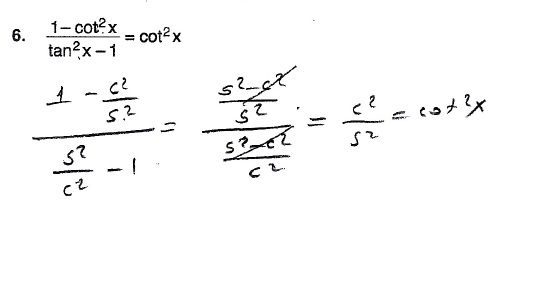 6. (1 − cot²x)/(tan²x − 1) = cot²x
(1 − c²/s²)/(s²/c² − 1) = ((s² − c²)/s²)/((s² − c²)/c²) = c²/s² = cot²x